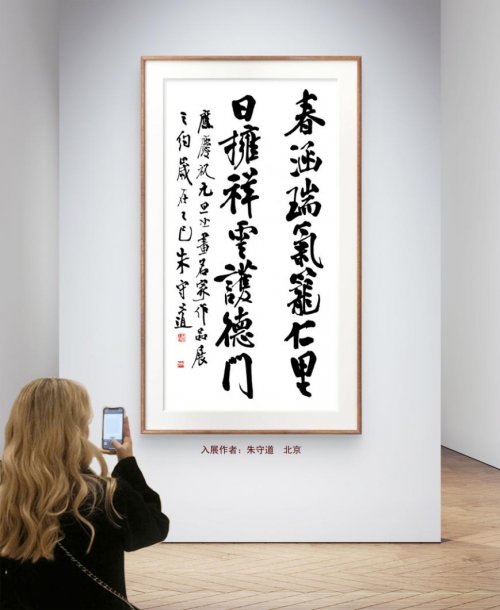 春涵瑞氣籠仁里
日擁祥雲護德門
應慶祝元旦书畫名家作品展
之约歲在乙巳朱守道
入展作者：朱守道 北京